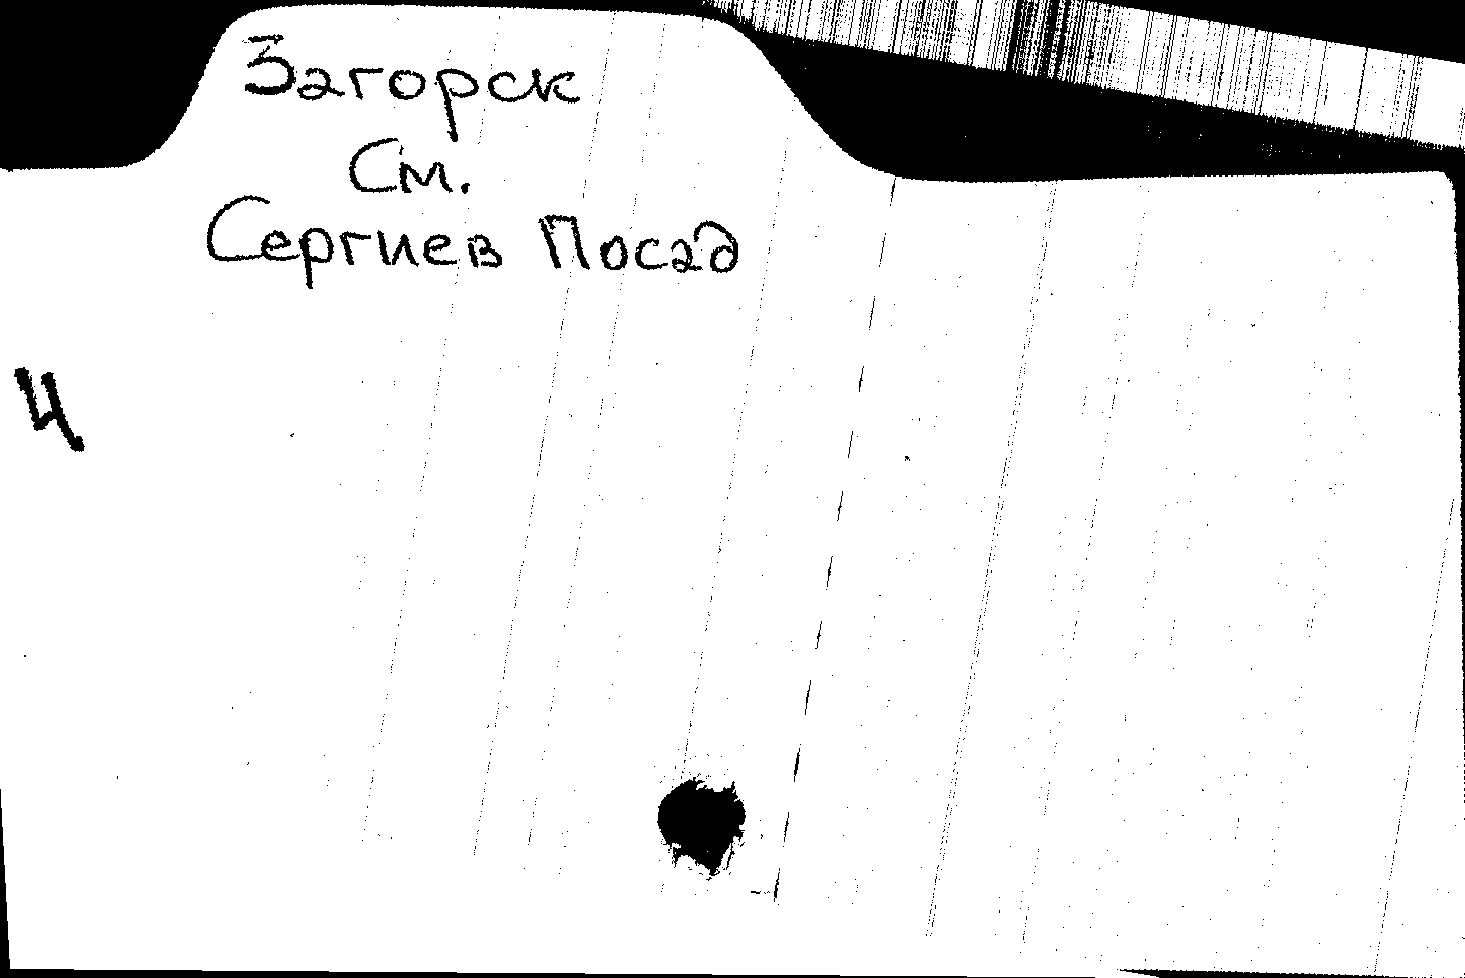 Загорск
См.
Сергиев Посад
4